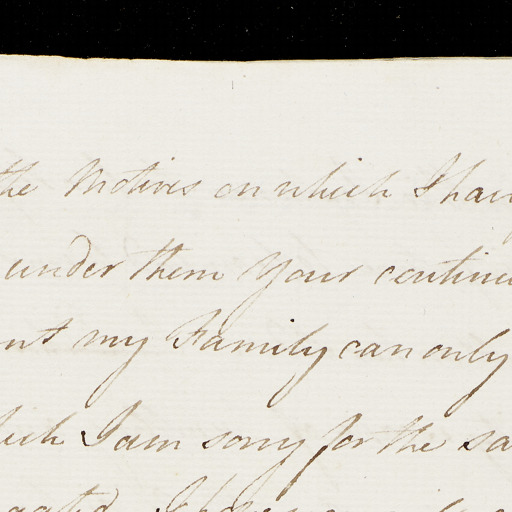 the Motives on which I hav
under them Your continu
nt my Family can only
hich I am sorry for the sa